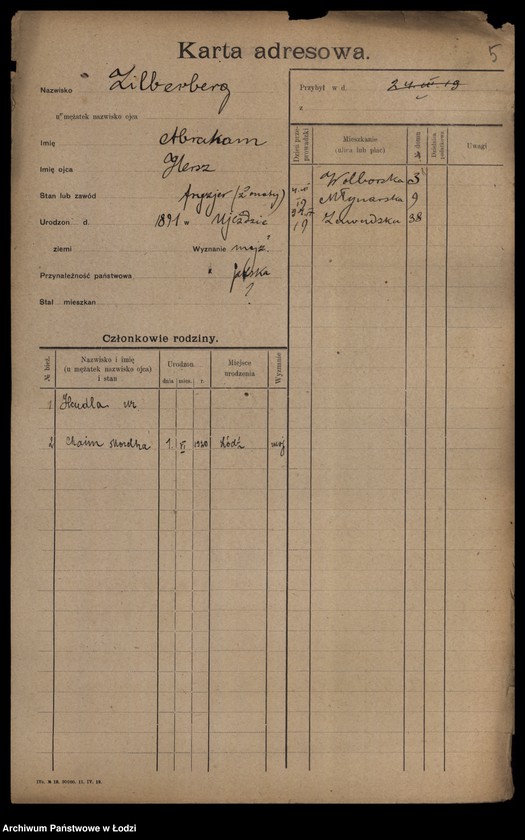 Karta adresowa.
5
Nazwisko Zilberberg
u mężatek nazwisko ojca
Imię Abraham
Imię ojca Hersz
Stan lub zawód fryzjer (żonaty)
Urodzon. d. 1891 w Ujeździe
ziemi Wyznanie mojż.
Przynależność państwowa polska
Stał mieszkan ?
Przybył w d. 24. IV. 19
z
Dzień prze-prowadzki
Mieszkanie
(ulica lub plac)
№ domu
Dzielnica policyjna
Uwagi
Wolborska 3
19 Młynarska 9
19 Zawadzka 38
Członkowie rodziny.
№ bież.
Nazwisko i imię
(u mężatek nazwisko ojca)
i stan
Urodzon.
dnia mies. r.
Miejsce
urodzenia
Wyznanie
1 Hendla ur
2 Chaim Mordka 1 VI 1920 Łódź moj
Archiwum Państwowe w Łodzi